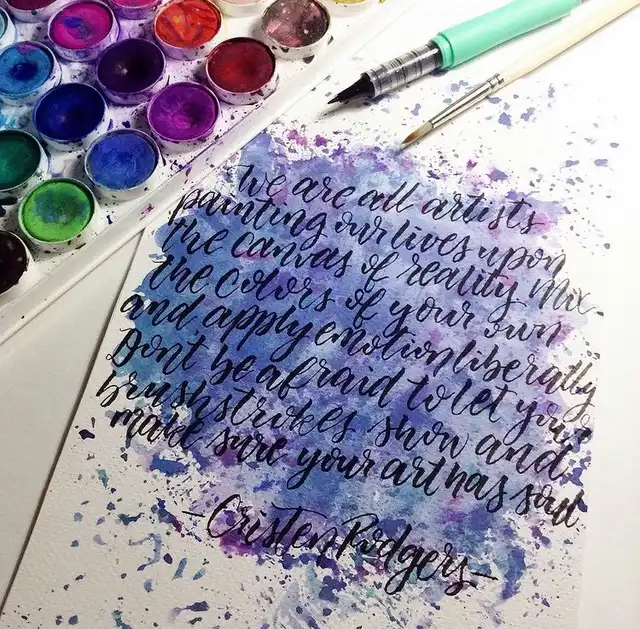 We are all artists
painting our lives upon
the canvas of reality. Mix
the colors of your own
and apply emotion liberally
Don't be afraid to let your
brushstrokes show and
make sure your art has soul
- Cristen Rodgers -